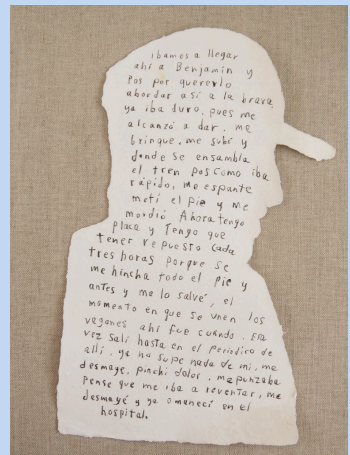 ibamos a llegar
ahí a Benjamin y
Pos por quererlo
abordar así a la brava
ya iba duro, pues me
alcanzó a dar. me
brinque, me subí y
donde se ensambla
el tren pos como iba
rápido, me espante
metí el pie y me
mordió Ahora tengo
placa y Tengo que
tener repuesto cada
tres horas porque se
me hincha todo el pie y
antes y me lo salvé, el
momento en que se unen los
vagones ahí fue cuando. Esa
vez salí hasta en el periodico de
alli, ya no supe nada de mi, me
desmaye, pinchi dolor, me punzaba
pense que me iba a reventar, me
desmayé y ya amanecí en el
hospital.